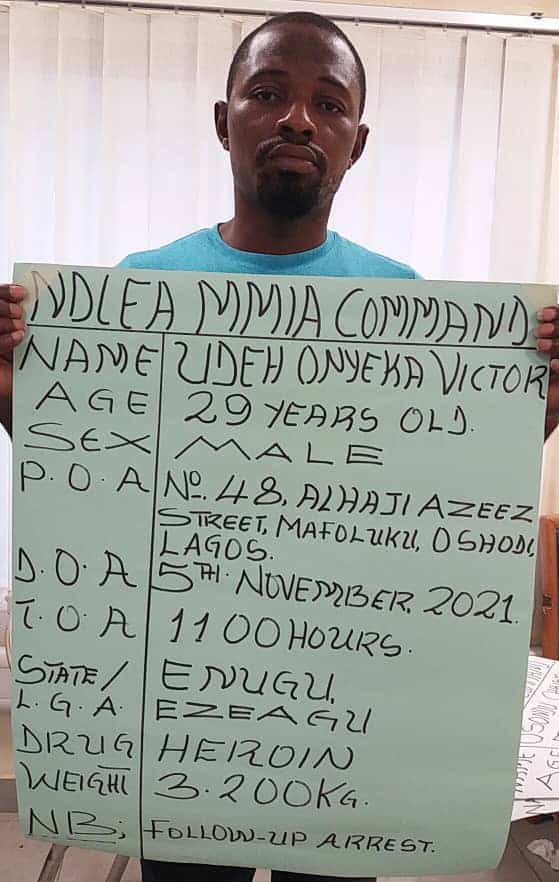 NDLEA MMIA COMMAND
NAME UDEH ONYEKA VICTOR
AGE 29 YEARS OLD.
SEX MALE
P.O.A NO. 48, ALHAJI AZEEZ
STREET, MAFOLUKU, OSHODI,
LAGOS.
D.O.A 5TH. NOVEMBER, 2021.
T.O.A 1100HOURS.
STATE/ ENUGU,
L.G.A. EZEAGU
DRUG HEROIN
WEIGHT 3.200KG.
NB; FOLLOW-UP ARREST.